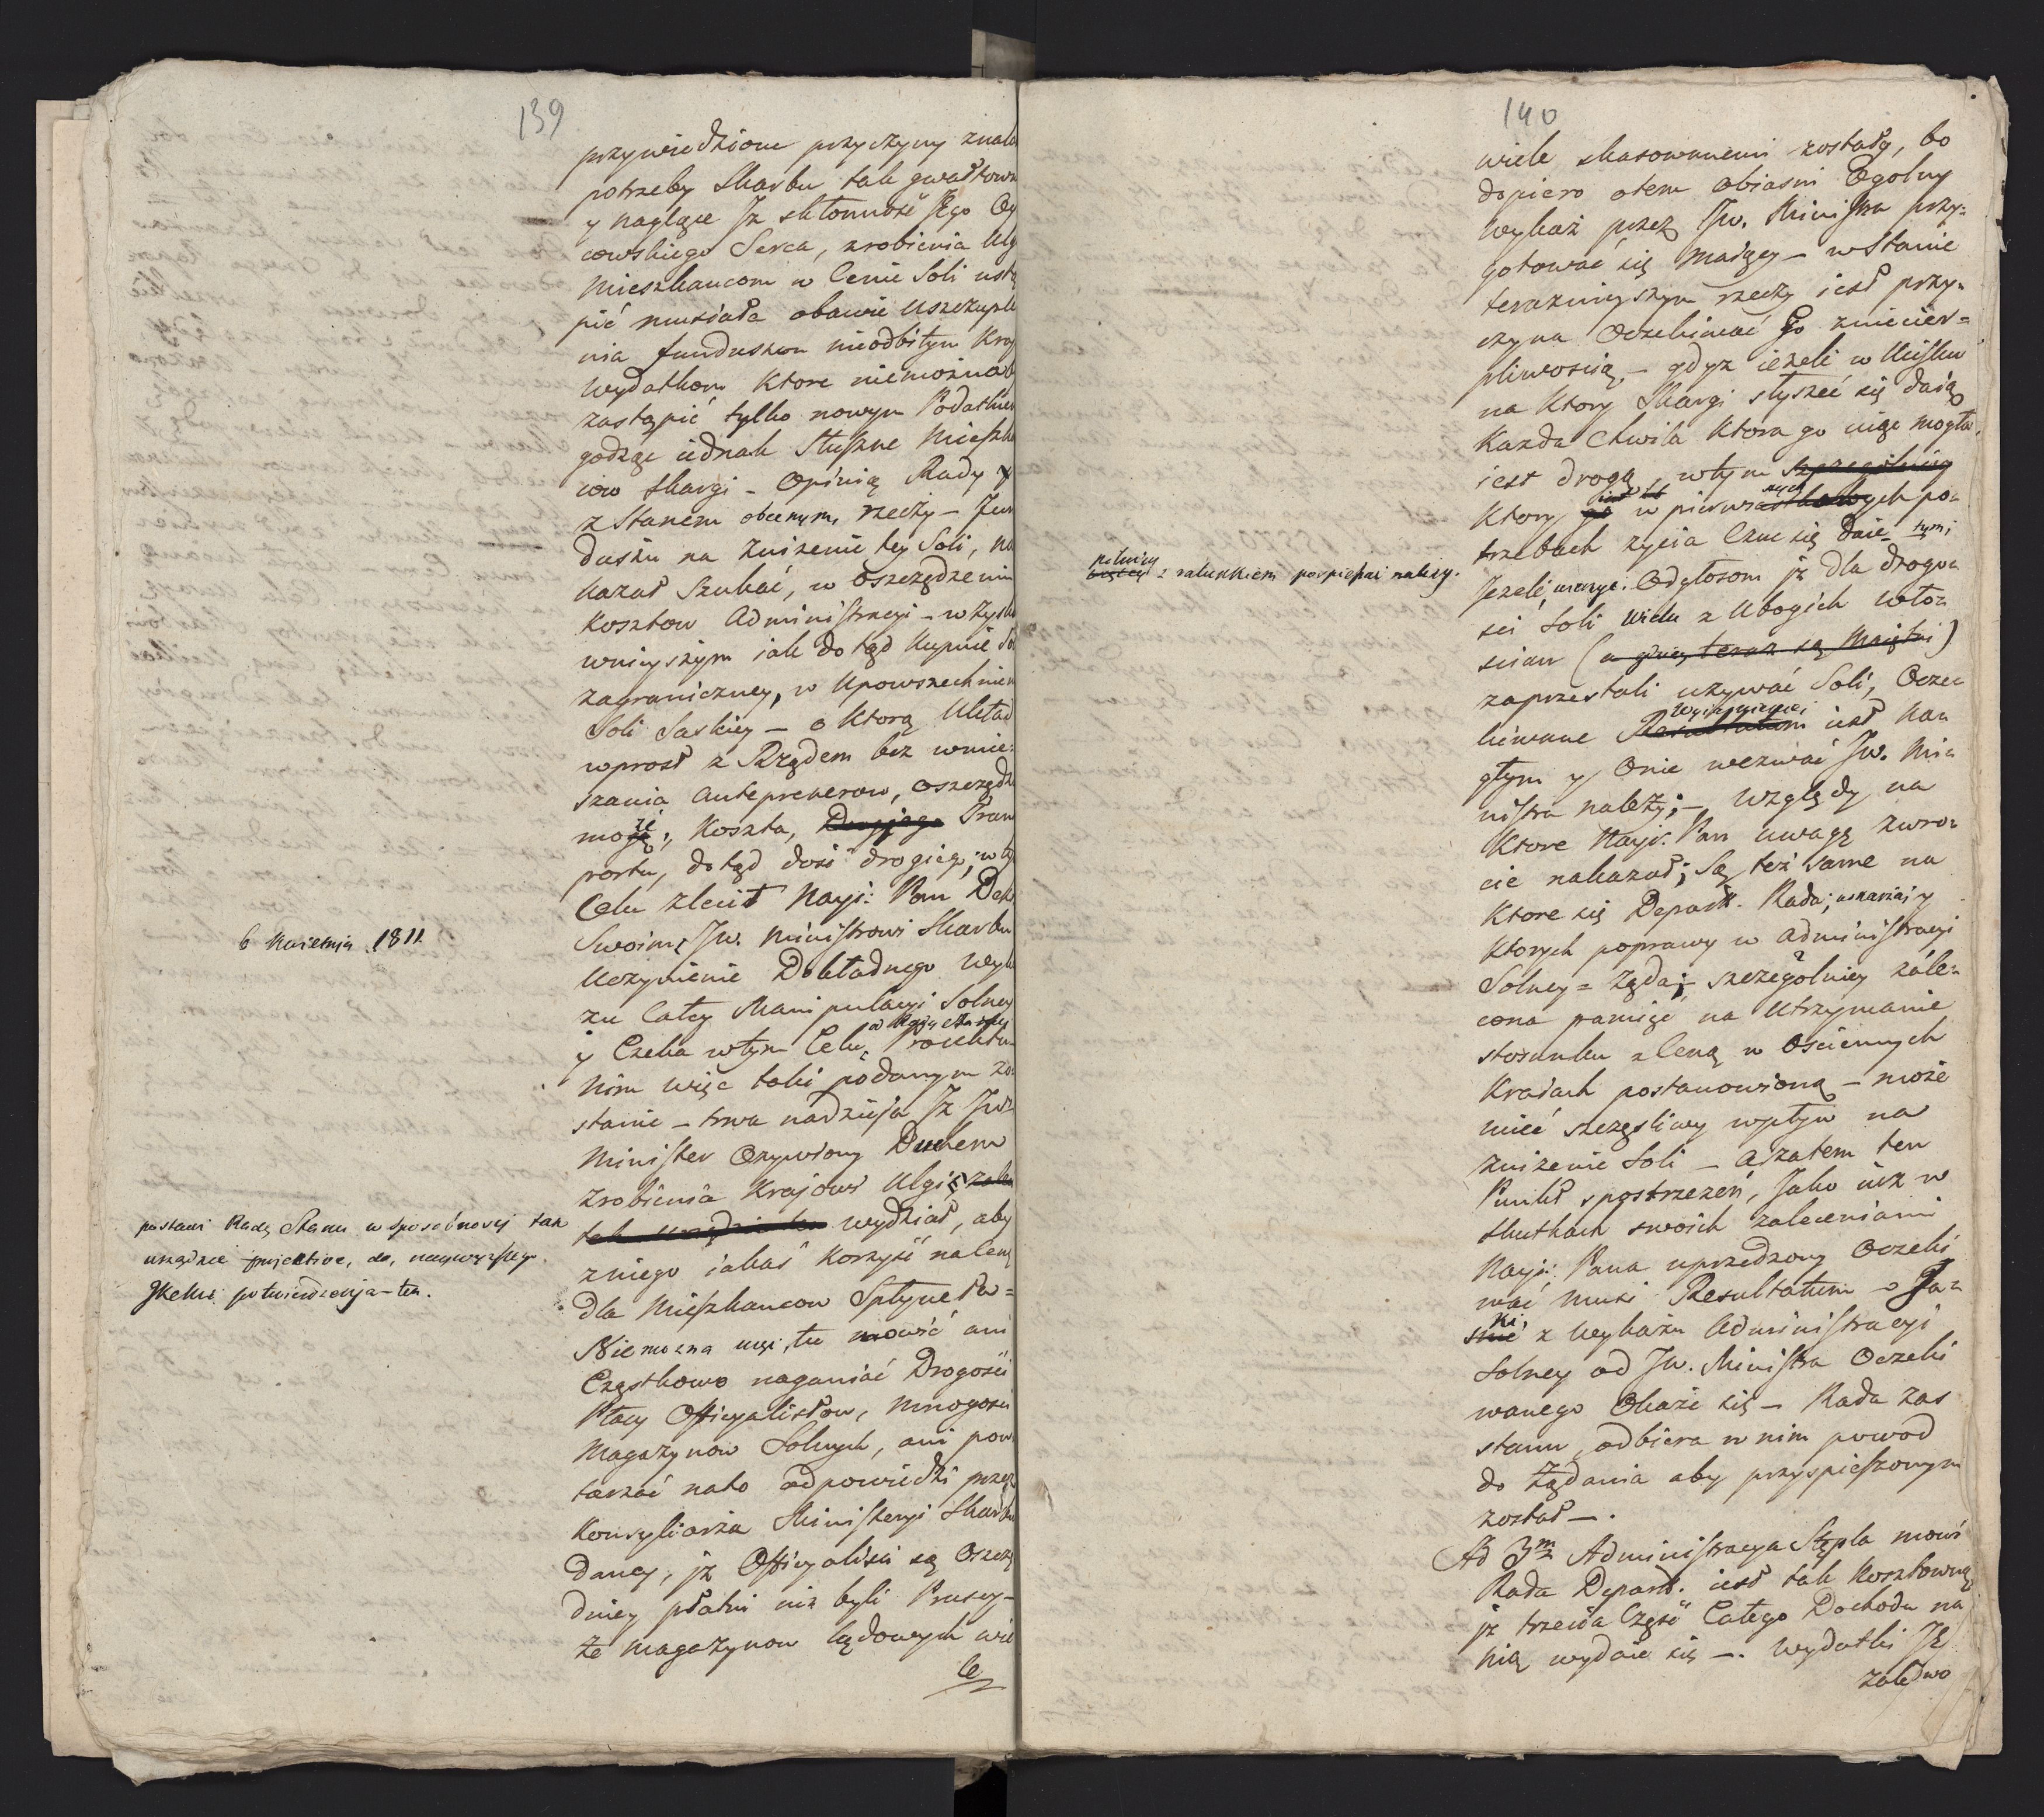 139
przywiedzione przyczyny znala
potrzeby Skarbu tak gwałtown
y naglące Jż skłonność Jego Oy
cowskiego Serca, zrobienia Ulg
Mieszkancom w Cenie Soli ustą
pić musiała obawie Uszczuple
nia funduszow nieodbitym Kray
Wydatkom Ktore niemożnab
zastąpić tylko nowym Podatkiem
godząc iednak Słuszne Mieszka
cow skargi - Opinią Rady y
z Stanem obecnym rzeczy - Fun
duszu na Zniżenie tey Soli, na
kazał Szukać, w Oszczędzeniu
Kosztow Administracyi - w zysko
wnieyszym iak dotąd Kupnie So
zagraniczney, w Upowszechnien
Soli Saskiey - o Ktorą Układ
wprost z Rządem bez wmie:
szania Antreprenerow, oszczędz
może, Koszta, Tran
portu, dotąd dość drogiego; w ty
Celu zlecił Nayi: Pan Dek
6 Kwietnia 1811
Swoim, JW. Ministrowi Skarbu
Uczynienie Dokładnego Wyk
zu Całey Manipulacyi Solney
y Czeka w tym Celu, Proiektu
Nim więc taki podanym zo:
stanie - trwa nadzieja Jż JW
Minister Ożywiony Duchem
Zrobienia Krajowi Ulgi,
postawi Radę Stanu w sposobności tak
urządzić proiektow, do, naywyższego
Jkmci potwierdzenia - ten.
wydział, aby
zniego iakaś korzyść na Cenę
dla Mieszkancow Spłynęła =
Niemożna więc, tu mowić ani
Cząstkowo naganiać Drogości
Płacy Officyalistow, mnogości
Magazynow Solnych, ani pow
tarzać nato odpowiedzi przez
Konsyliarza Ministeryi Skarbu
daney, jż Officyaliści są Oszczę
dniey płatni niż byli Pruscy -
że Magazynow lądowych wie
le
140
wiele skasowanemi zostały, bo
dopiero otem obiaśni Ogolny
Wykaz przez JW. Ministra przy:
gotować się Maiący - w Stanie
teraznieyszym rzeczy iest przy:
czyna Oczekiwać go zniecier=
pliwością, - gdyż ieżeli w Ucisku
na Ktory Skargi słyszeć się daią
Kazda Chwila Ktora go niże mogła
iest drogą, w tym szczegolniey
Ktory w pierwszych po:
trzebach życia Czuć się daie tymi
z ratunkiem pospieszać należy.
Jeżeli, Odgłosom jż dla drogo:
ści Soli Wielu z Ubogich Wło:
scian (a y teraz są Maiętni)
zaprzestali używać Soli, Ocze:
kiwane Wyiasnienie iest Na:
głym y Onie wezwać JW. Mi:
nistra należy; - Względy na
Ktore Nayi: Pan uwagę zwro:
cić nakazał; Są też same na
Ktore się Depart. Rada; uskarżaią y
Ktorych poprawy w Administracyi
Solney = Ząda; - szczegolniey zale:
cona pamięć na Utrzymanie
stosunku z Ceną w Ościennych
Kraiach postanowioną - może
mieć szczęśliwy wpływ na
Zniżenie Soli - A zatem ten
Punkt spostrzeżeń, Jako iuż w
skutkach swoich zaleceniami
Nayi: Pana uprzedzony Oczeki
wać Musi Resultatum - Ja:
ki z Wykazu Administracyi
Solney od JW. Ministra Oczeki
wanego Okaże się - Rada zas
stanu, odbiera w nim powod
do Ządania aby przyspieszonym
został -.
Ad 3m Administracya Stępla mowi
Rada Depart. iest tak Kosztowną
jż trzecia Część Całego Dochodu na
Nią wydaie się -. Wydatki Jey
zaledwo